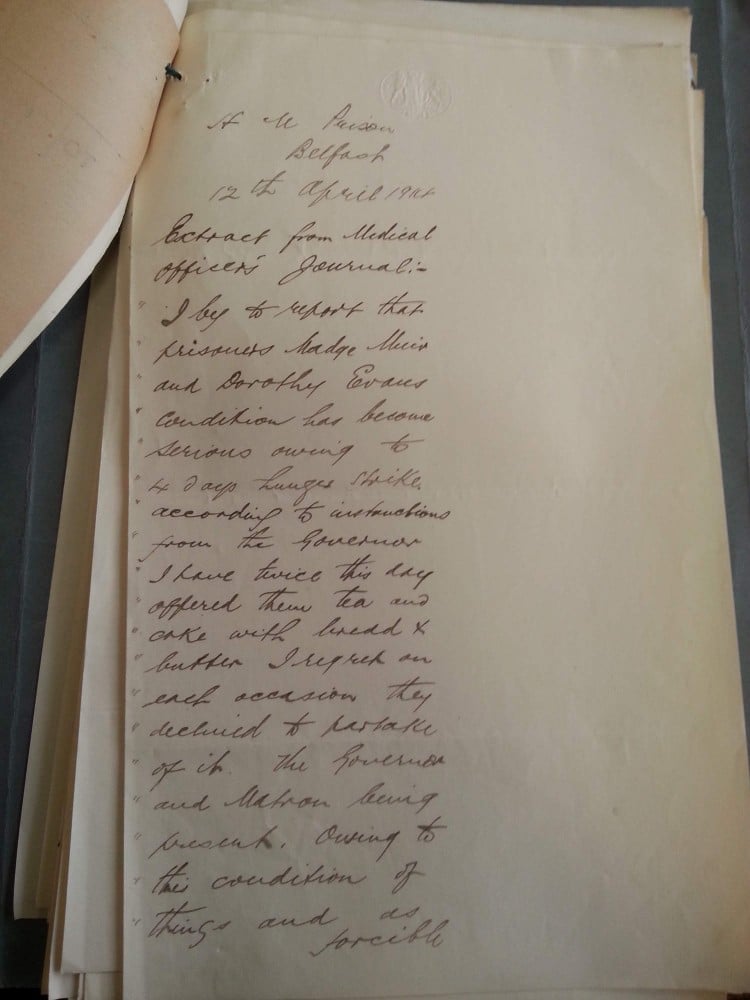 H M Prison
Belfast
12th April 1914
Extract from Medical
officer's Journal:-
" I beg to report that
" prisoners Madge Muir
" and Dorothy Evans
" condition has become
" serious owing to
" 4 days hunger strike
" according to instructions
" from the Governor
" I have twice this day
" offered them tea and
" cake with bread &
" butter I regret on
" each occasion they
" declined to partake
" of it. the Governor
" and Matron being
" present. Owing to
" this condition of
" things and as
forcible